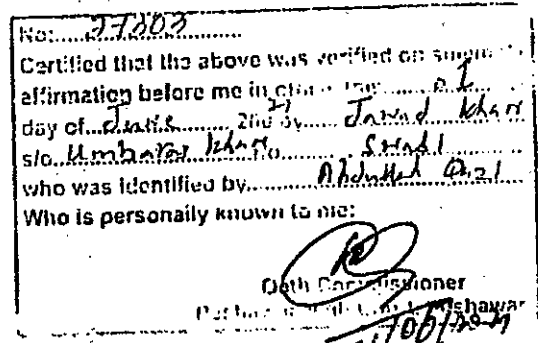 No:....27303....
Certified that the above was verified on solemn
affirmation before me in office this.......01
day of..June....2021 by....Jawad khan
s/o. Umbaras khan r/o....Swabi
who was identified by.......Abdullah Qazi
Who is personally known to me:
Oath Commissioner
Peshawar High Court Peshawar